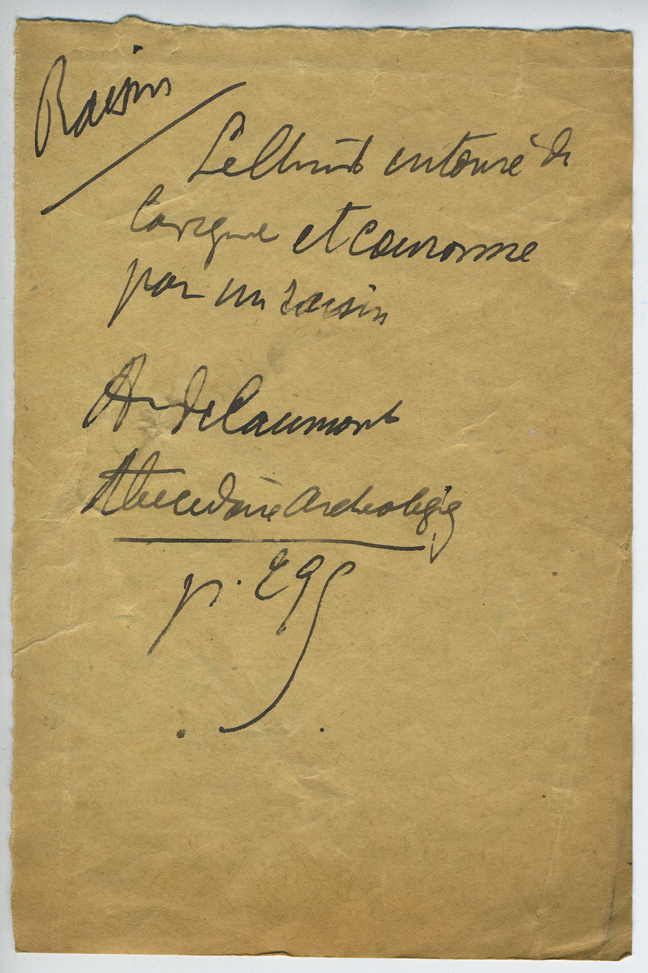 Raisin
entouré de
et couronné
par un raisin
A. de Caumont
Abecedaire Archeologie
p. 295